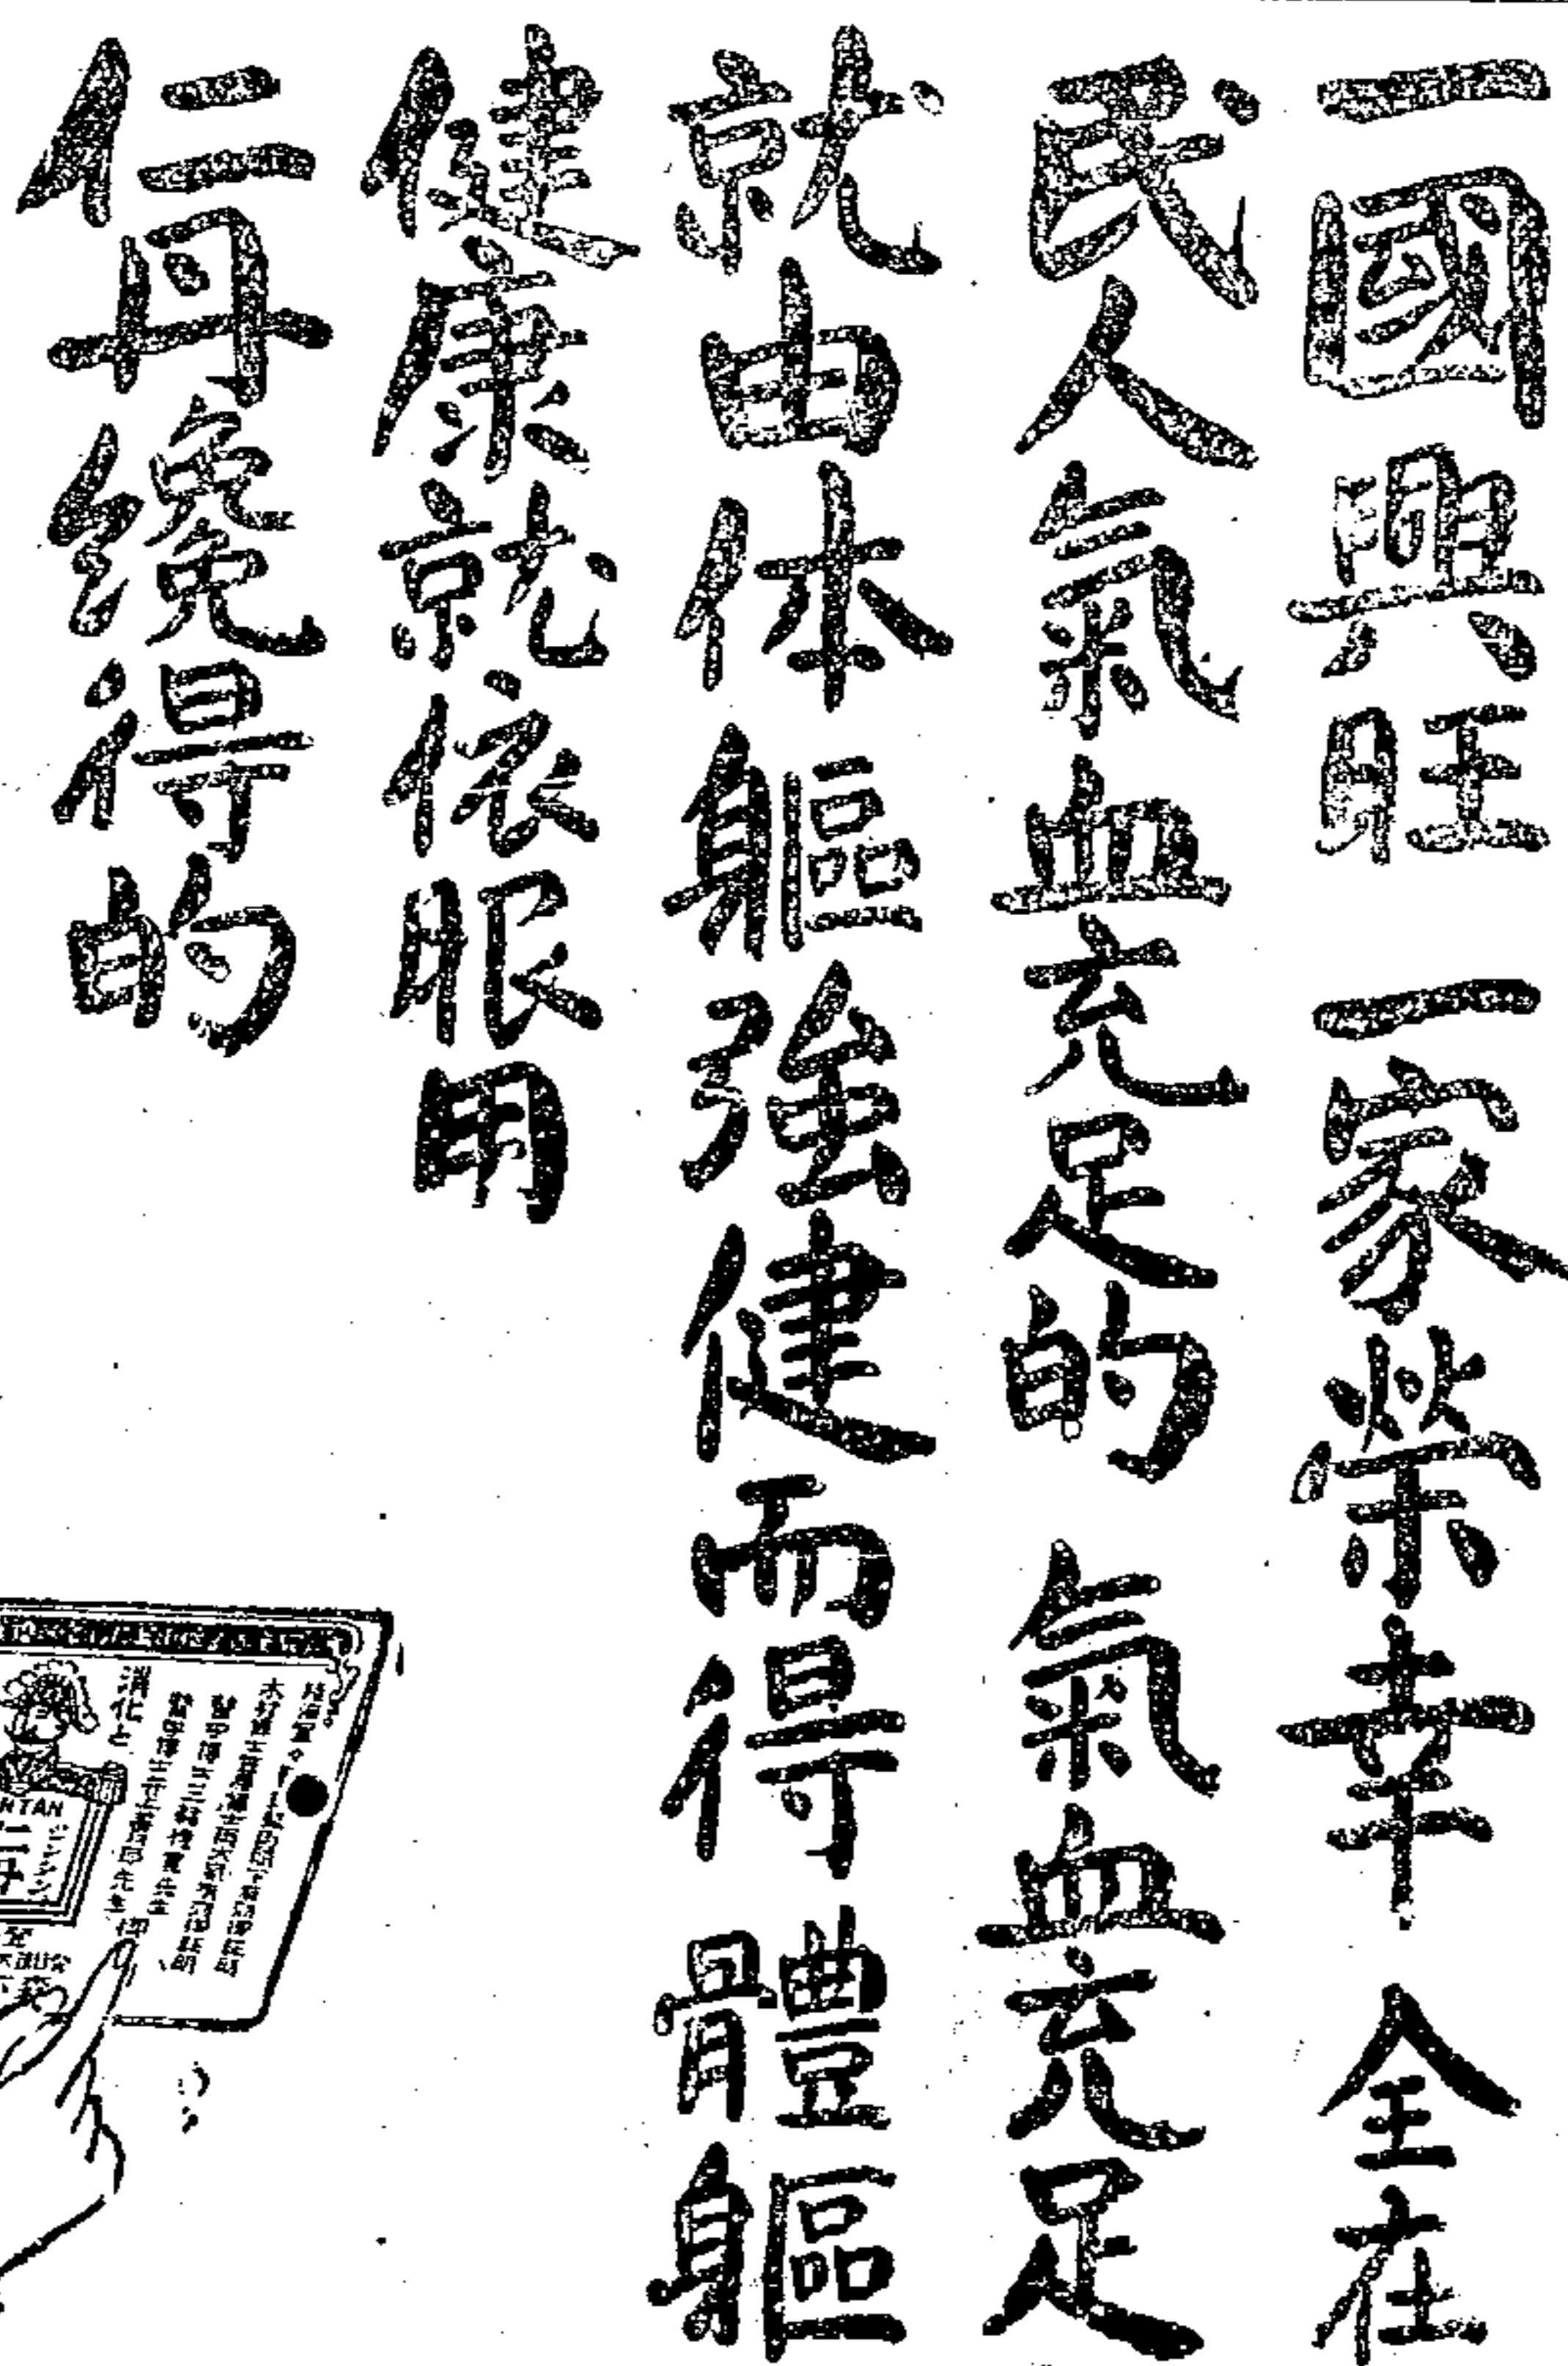 一國興旺 一家榮幸 全在
民人氣血充足的 氣血充足
就由体軀強健而得 體軀
健康就依服用
仁丹纔得的
NTAN